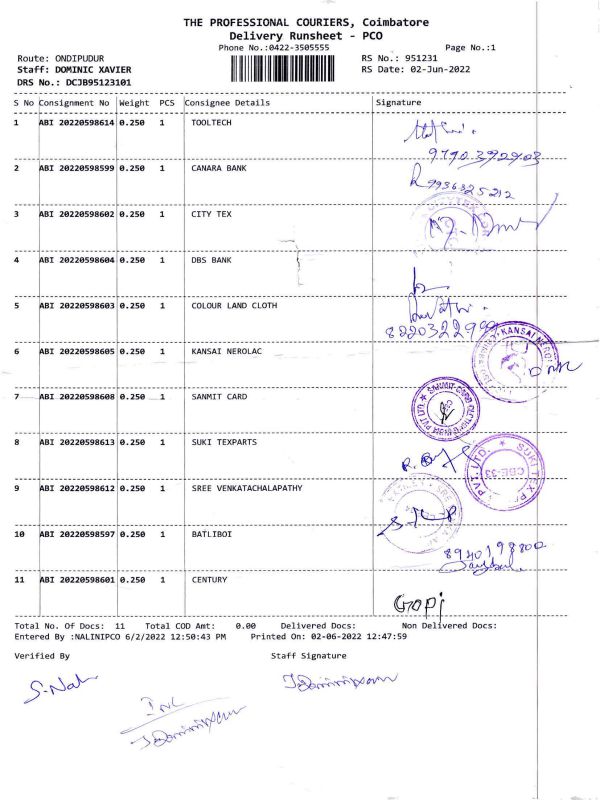 THE PROFESSIONAL COURIERS, Coimbatore
Delivery Runsheet - PCO
Phone No.:0422-3505555
Page No.:1
Route: ONDIPUDUR
RS No.: 951231
Staff: DOMINIC XAVIER
RS Date: 02-Jun-2022
DRS No.: DCJB95123101
S No Consignment No Weight PCS Consignee Details Signature
1 ABI 20220598614 0.250 1 TOOLTECH
9790392903
2 ABI 20220598599 0.250 1 CANARA BANK
3 ABI 20220598602 0.250 1 CITY TEX
4 ABI 20220598604 0.250 1 DBS BANK
5 ABI 20220598603 0.250 1 COLOUR LAND CLOTH
6 ABI 20220598605 0.250 1 KANSAI NEROLAC
KANSAI
7 ABI 20220598608 0.250 1 SANMIT CARD
SANMIT CARD PVT LTD.
8 ABI 20220598613 0.250 1 SUKI TEXPARTS
SUKI TEX PVT. LTD. CBE-33
9 ABI 20220598612 0.250 1 SREE VENKATACHALAPATHY
10 ABI 20220598597 0.250 1 BATLIBOI
8940198800
11 ABI 20220598601 0.250 1 CENTURY
Gopi
Total No. Of Docs: 11 Total COD Amt: 0.00 Delivered Docs: Non Delivered Docs:
Entered By :NALINIPCO 6/2/2022 12:50:43 PM Printed On: 02-06-2022 12:47:59
Verified By Staff Signature